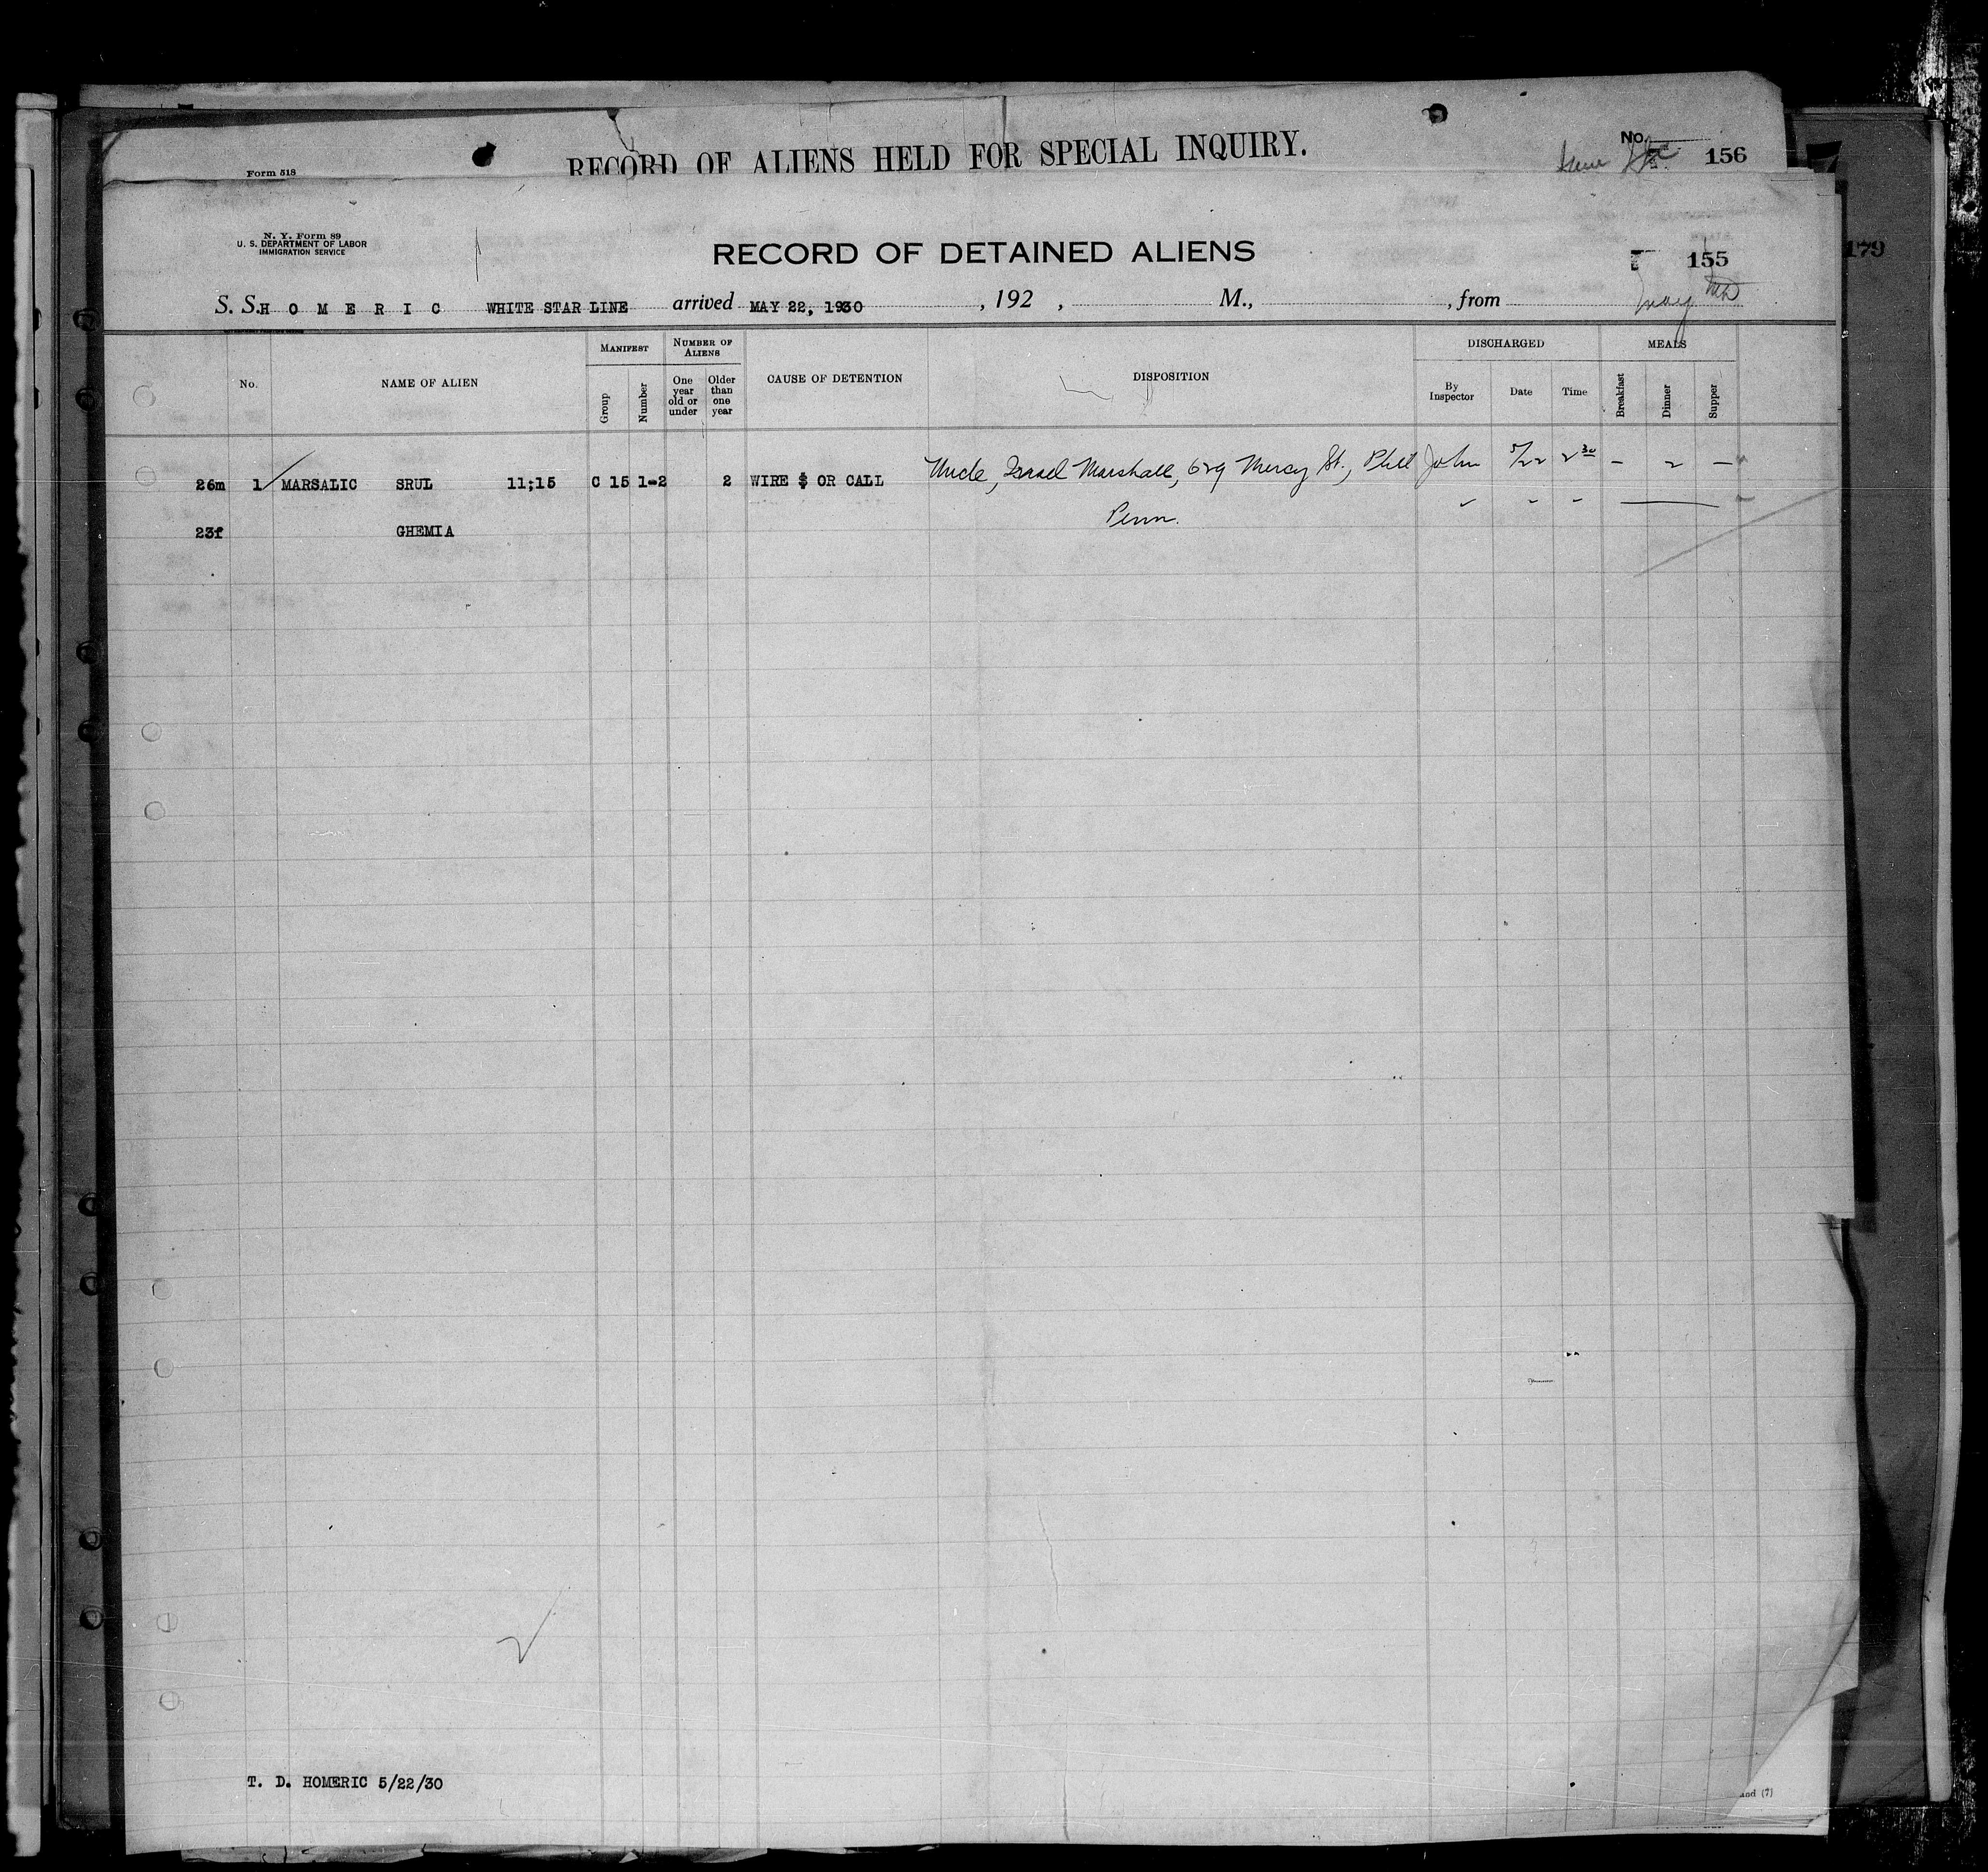 Form 518
RECORD OF ALIENS HELD FOR SPECIAL INQUIRY.
No. 156
179
N. Y. Form 89
U. S. DEPARTMENT OF LABOR
IMMIGRATION SERVICE
RECORD OF DETAINED ALIENS
155
S. S. H O M E R I C WHITE STAR LINE arrived MAY 22, 1930 , 192 , M., , from
No.
NAME OF ALIEN
MANIFEST
Group
Number
NUMBER OF ALIENS
One year old or under
Older than one year
CAUSE OF DETENTION
DISPOSITION
DISCHARGED
By Inspector
Date
Time
MEALS
Breakfast
Dinner
Supper
26m 1 MARSALIC SRUL 11;15 C 15 1-2 2 WIRE $ OR CALL Uncle, Israel Marshall, 629 Mercy St., Phil John 5/22 2 30 – 2 –
Penn.
23f GHEMIA
T. D. HOMERIC 5/22/30
and (7)